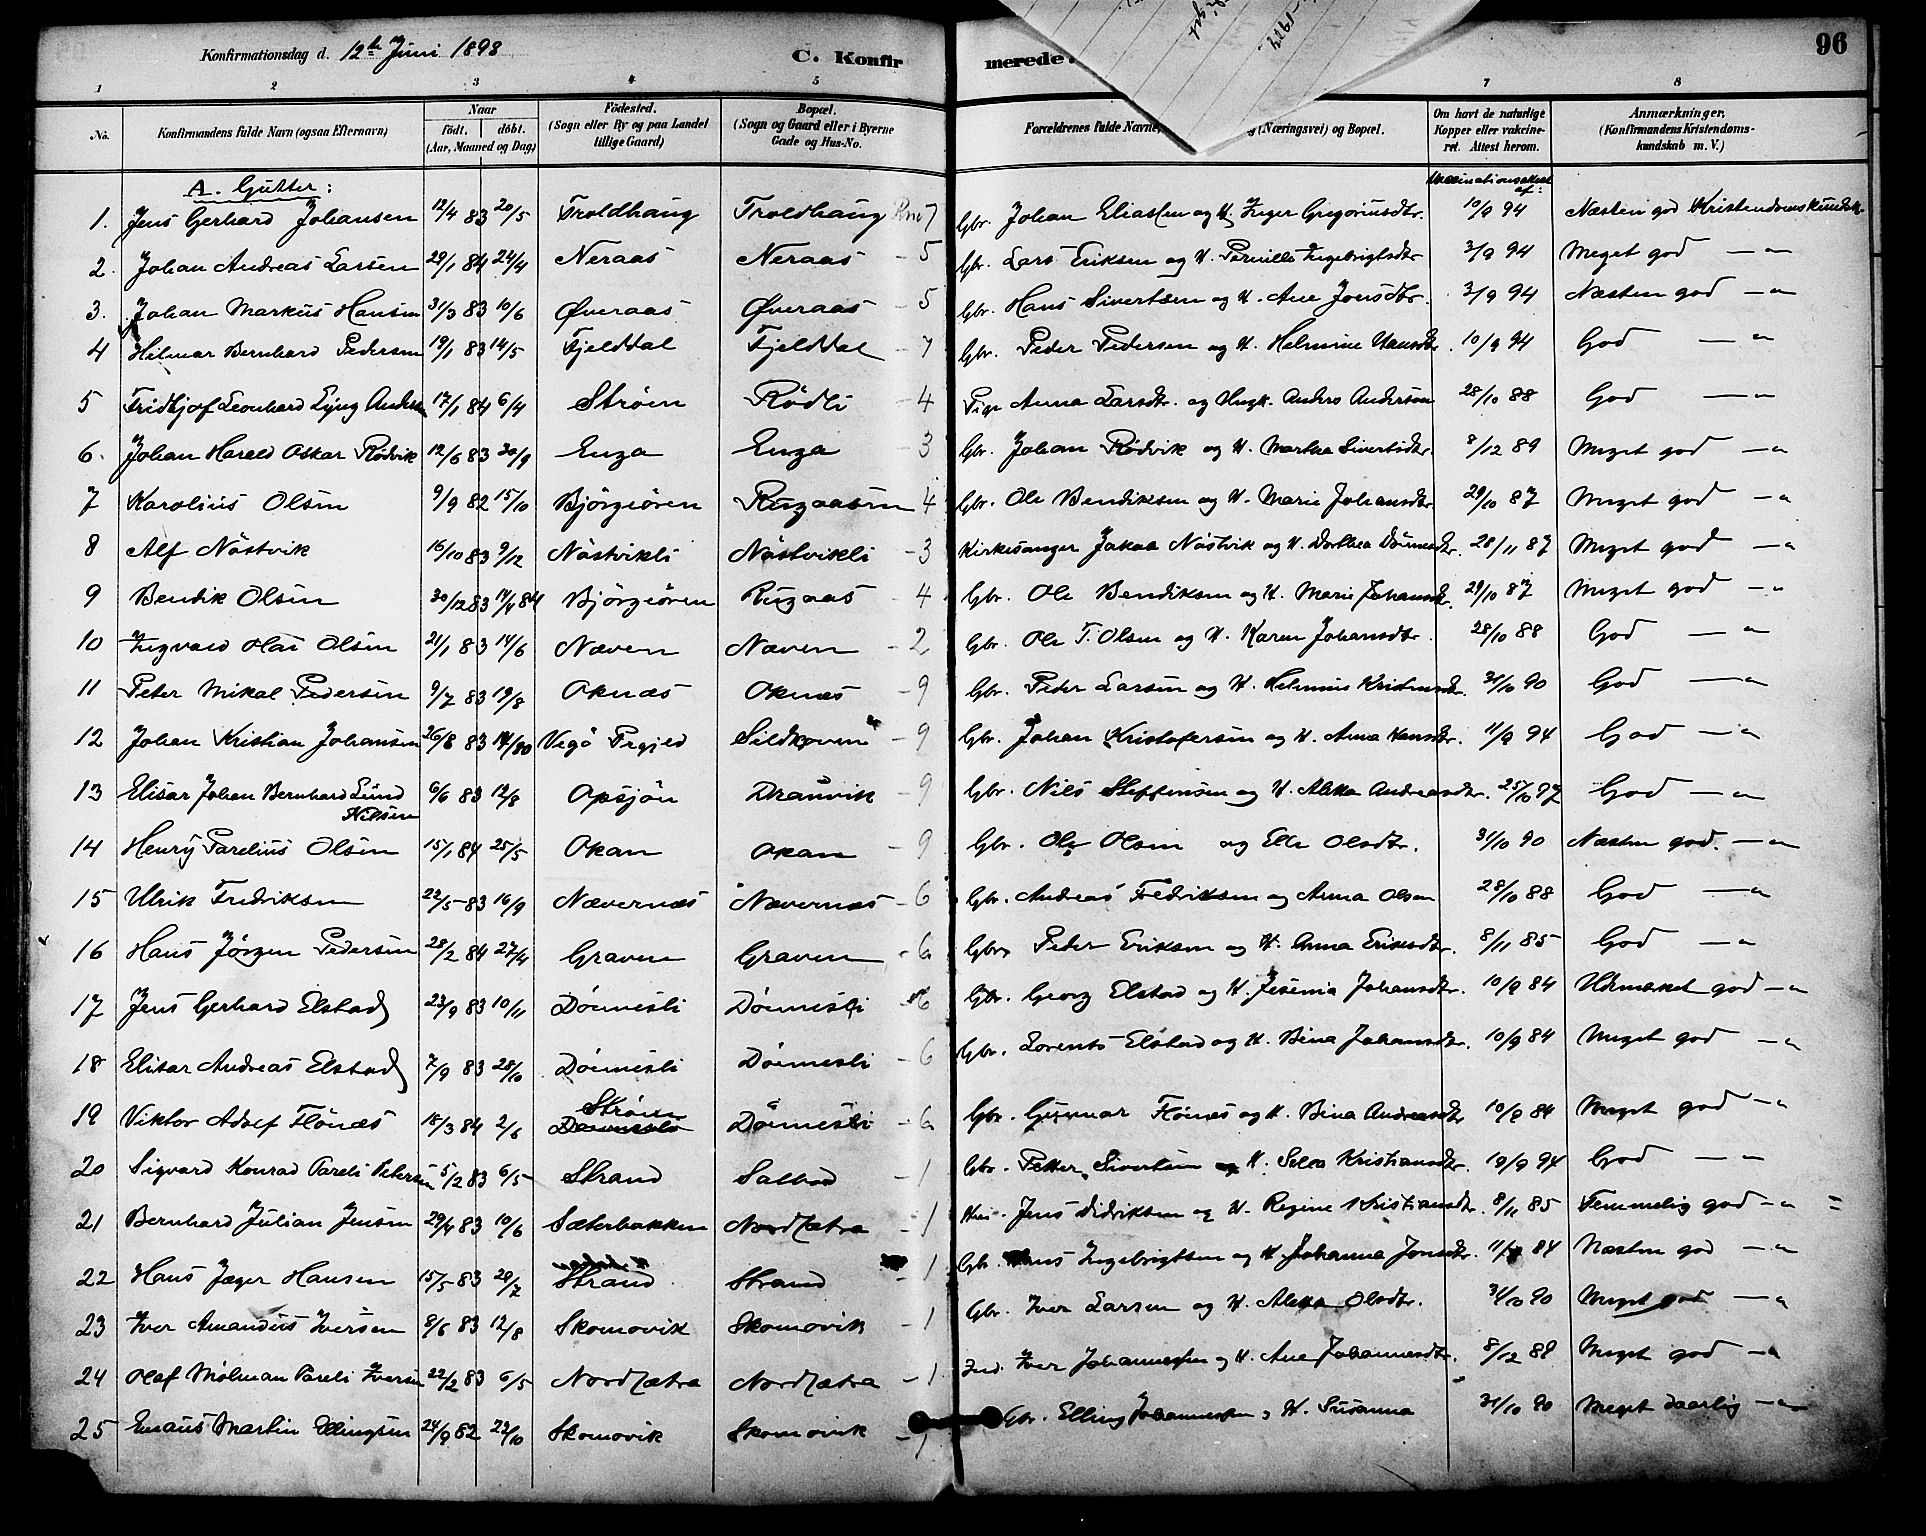 Konfirmationsdag d. 12te Juni 1898 C. Konfir merede. 96
1 2 3 4 5 7 8
No. Konfirmandens fulde Navn (ogsaa Efternavn) Naar födt. döbt. (Aar, Maaned og Dag) Födested. (Sogn eller By og paa Landet tillige Gaard) Bopæl. (Sogn og Gaard eller i Byerne Gade og Hus-No. Forældrenes fulde Navne, (Næringsvei) og Bopæl. Om havt de naturlige Kopper eller vakcineret. Attest herom. Anmærkninger. (Konfirmandens Kristendomskundskab m. V.)
A. Gutter: Vaccinationsattest af:
1. Jens Gerhard Johansen 12/4 83 20/5 Troldhaug Troldhaug 7 Gbr. Johan Eliassen og H. Inger Gregoriusdtr. 10/9 94 Næsten god Kristendomskundsk.
2. Johan Andreas Larsen 29/1 84 24/4 Neraas Neraas - 5 Gbr. Lars Eriksen og H. Pernille Ingebrigtsdtr 3/9 94 Meget god — "
3. Johan Markus Hansen 31/3 83 10/6 Øveraas Øveraas - 5 Gbr. Hans Sivertsen og H. Ane Jonsdtr. 3/9 94 Næsten god — "
4 Hilmar Bernhard Pedersen 19/1 83 14/5 Fjeldtal Fjeldtal - 7 Gbr. Peder Pedersen og H. Helmine Hansdtr. 10/9 94 God — "
5 Fridtjof Leonhard Ljng Anders 17/1 84 6/4 Strøen Rödli - 4 Pige Anna Larsdtr. og Ungk. Anders Andersen 28/10 88 God — "
6. Johan Harald Oskar Rödvik 12/6 83 30/9 Enga Enga - 3 Gbr. Johan Rödvik og H. Martha Sivertsdtr. 8/12 89 Meget god — "
7 Karolius Olsen 9/9 82 15/10 Björgiören Rugaasen 4 Gbr. Ole Bendiksen og H. Marie Johansdtr. 29/10 87 Meget god — "
8 Alf Nöstvik 16/10 83 9/12 Nöstvikli Nöstvikli - 3 Kirkesanger Jakob Nöstvik og H. Dorthea 28/11 87 Meget god — "
9 Bendik Olsen 30/12 83 14/4 84 Björgiören Rugaas - 4 Gbr. Ole Bendiksen og H. Marie Johansdtr. 29/10 87 Meget god — "
10 Ingvald Olai Olsen 21/1 83 14/6 Næven Næven - 2 Gbr. Ole T. Olsen og H. Karen Johansdtr. 28/10 88 God — "
11 Peter Mikal Pedersen 9/7 83 19/8 Oknæs Oknæs - 9 Gbr. Peder Larsen og H. Helmine 31/10 90 God — "
12 Johan Kristian Johansen 26/8 83 14/10 Vegö Sildhoven - 9 Gbr. Johan Kristofersen og H. Anna Hansdtr. 11/9 94 God — "
13 Elisar Johan Bernhard Lund Nilsen 6/6 83 12/8 Opsjön - 9 Gbr. Nils Steffensen og H. Andreasdtr. 25/10 87 God — "
14 Henry Parelius Olsen 15/1 84 25/5 Okan Okan - 9 Gbr. Ole Olsen og Elle Olsdtr. 31/10 90 Næsten god. — "
15 Ulrik Fredriksen 22/5 83 16/9 Nævernæs Nævernæs - 6 Gbr. Andreas Fredriksen og Anna Olsen 28/10 88 God — "
16 Hans Jörgen Pedersen 28/2 84 27/4 Graven Graven - 6 Gbr. Peder Eriksen og H. Anna Eriksdtr. 8/11 85 God — "
17 Jens Gerhard Elstad 23/9 83 10/11 Dönnesli Dönnesli 6 Gbr. Georg Elstad og H. Jesenia Johansdtr. 10/9 84 Udmærket god — "
18 Elisar Andreas Elstad 7/9 83 28/10 Dönnesli Dönnesli - 6 Gbr. Lorents Elstad og H. Bina Johansdtr. 10/9 84 Meget god — "
19 Viktor Adolf Flönæs 18/3 84 2/6 Strøen Dönnesli Dönnesli - 6 Gbr. Flönæs og H. Bina Andreasdtr 10/9 84 Meget god — "
20 Sigvard Konrad Pareli Petersen 5/2 83 6/5 Strand - 1 Gbr. Petter Sivertsen og H. Kristiansdtr. 19/9 94 God — "
21 Bernhard Julian Jensen 29/4 83 10/6 Sæterbakken Nordsætra - 1 Jens Didriksen og H. Regine Kristiansdtr. 8/11 85 Temmelig god — " =
22 Hans Jæger Hansen 15/5 83 29/7 Strand Strand - 1 Gbr. Hans Ingebrigtsen og H. Johanna Jonsdtr. 84 Næsten god — "
23 Iver Amandus Iversen 8/6 83 12/8 Skomovik Skomovik - 1 Gbr. Iver Larsen og H. Olsdtr. 31/10 90 Meget god — "
24 Olaf Molman Pareli Iversen 22/2 83 6/5 Nordsætra Nordsætra - 1 Ind. Iver Johannessen og H. Ane Johannesdtr. 8/12 88 Meget god — "
25 Martin Ellingsen 24/9 82 22/10 Skomovik Skomovik - 1 Gbr. Elling Johannessen og H. Susanna 31/10 90 Meget daarlig — "